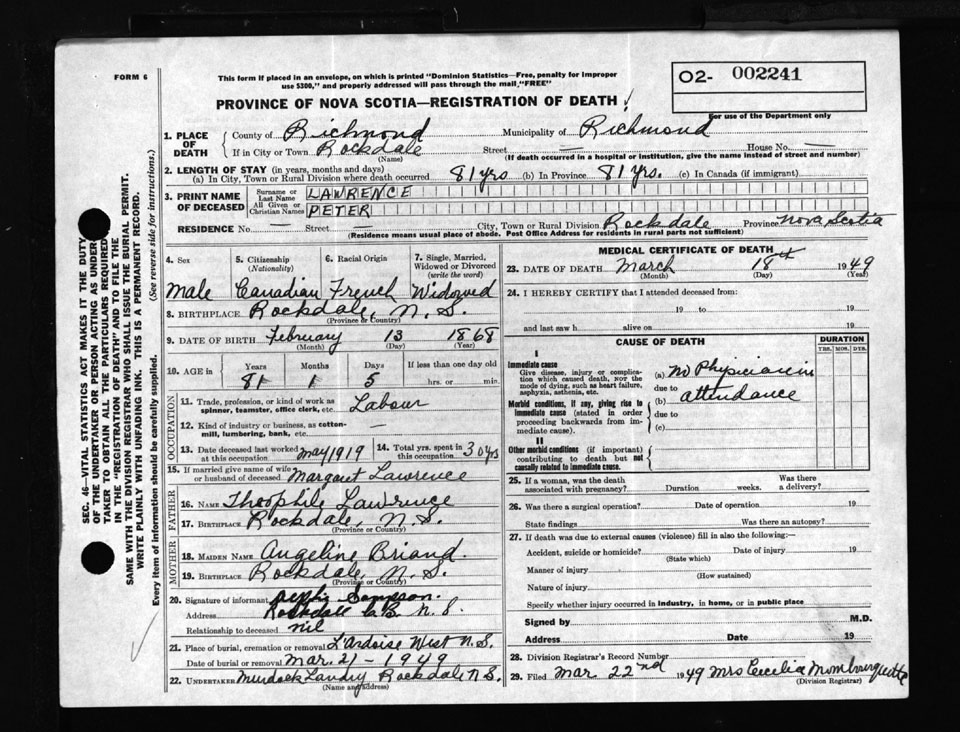 FORM 6
This form if placed in an envelope, on which is printed "Dominion Statistics—Free, penalty for improper
use $300," and properly addressed will pass through the mail, "FREE"
O2- 002241
For use of the Department only
PROVINCE OF NOVA SCOTIA—REGISTRATION OF DEATH
1. PLACE OF DEATH
County of Richmond Municipality of Richmond
If in City or Town Rockdale Street — House No. —
(Name) (If death occurred in a hospital or institution, give the name instead of street and number)
2. LENGTH OF STAY (in years, months and days)
(a) In City, Town or Rural Division where death occurred 81 yrs (b) In Province 81 yrs. (c) In Canada (if immigrant)
3. PRINT NAME OF DECEASED
Surname or Last Name LAWRENCE
All Given or Christian Names PETER
RESIDENCE No. — Street — City, Town or Rural Division Rockdale Province Nova Scotia
(Residence means usual place of abode. Post Office Address for residents in rural parts not sufficient)
4. Sex Male
5. Citizenship (Nationality) Canadian
6. Racial Origin French
7. Single, Married, Widowed or Divorced (write the word) Widowed
8. BIRTHPLACE Rockdale, N. S.
(Province or Country)
9. DATE OF BIRTH February 13 1868
(Month) (Day) (Year)
10. AGE in Years Months Days If less than one day old
81 1 5 hrs. or min.
OCCUPATION
11. Trade, profession, or kind of work as spinner, teamster, office clerk, etc. Labour
12. Kind of industry or business, as cotton-mill, lumbering, bank, etc. —
13. Date deceased last worked at this occupation May 1919
14. Total yrs. spent in this occupation 30 yrs
15. If married give name of wife or husband of deceased Margaret Lawrence
FATHER
16. NAME Thoophile Lawrence
17. BIRTHPLACE Rockdale, N. S.
(Province or Country)
MOTHER
18. MAIDEN NAME Angeline Briand.
19. BIRTHPLACE Rockdale, N. S.
(Province or Country)
20. Signature of informant Sampson.
Address Rockdale C.B. N. S.
Relationship to deceased nil
21. Place of burial, cremation or removal L'Ardoise West N. S.
Date of burial or removal Mar. 21 - 1949
22. UNDERTAKER Murdock Landry Rockdale, N S.
(Name and address)
MEDICAL CERTIFICATE OF DEATH
23. DATE OF DEATH March 18th 1949
(Month) (Day) (Year)
24. I HEREBY CERTIFY that I attended deceased from:
19 to 19
and last saw h alive on 19
CAUSE OF DEATH
DURATION
YRS. MOS. DYS.
I
Immediate cause
Give disease, injury or complication which caused death, NOT the mode of dying, such as heart failure, asphyxia, asthenia, etc.
(a) No Physician in
due to
(b) attendance
Morbid conditions, if any, giving rise to immediate cause (stated in order proceeding backwards from immediate cause).
due to
(c)
II
Other morbid conditions (if important) contributing to death but not causally related to immediate cause.
25. If a woman, was the death associated with pregnancy? Duration weeks. Was there a delivery?
26. Was there a surgical operation? Date of operation 19
State findings Was there an autopsy?
27. If death was due to external causes (violence) fill in also the following:—
Accident, suicide or homicide? Date of injury 19
(State which)
Manner of injury
(How sustained)
Nature of injury
Specify whether injury occurred in industry, in home, or in public place
Signed by M.D.
Address Date 19
28. Division Registrar's Record Number
29. Filed Mar. 22nd 1949 Mrs Cecelia Mombourquette
(Division Registrar)
SEC. 46—VITAL STATISTICS ACT MAKES IT THE DUTY
OF THE UNDERTAKER OR PERSON ACTING AS UNDER-
TAKER TO OBTAIN ALL THE PARTICULARS REQUIRED
IN THE "REGISTRATION OF DEATH" AND TO FILE THE
SAME WITH THE DIVISION REGISTRAR WHO SHALL ISSUE THE BURIAL PERMIT.
WRITE PLAINLY WITH UNFADING INK. THIS IS A PERMANENT RECORD.
Every item of information should be carefully supplied. (See reverse side for instructions.)